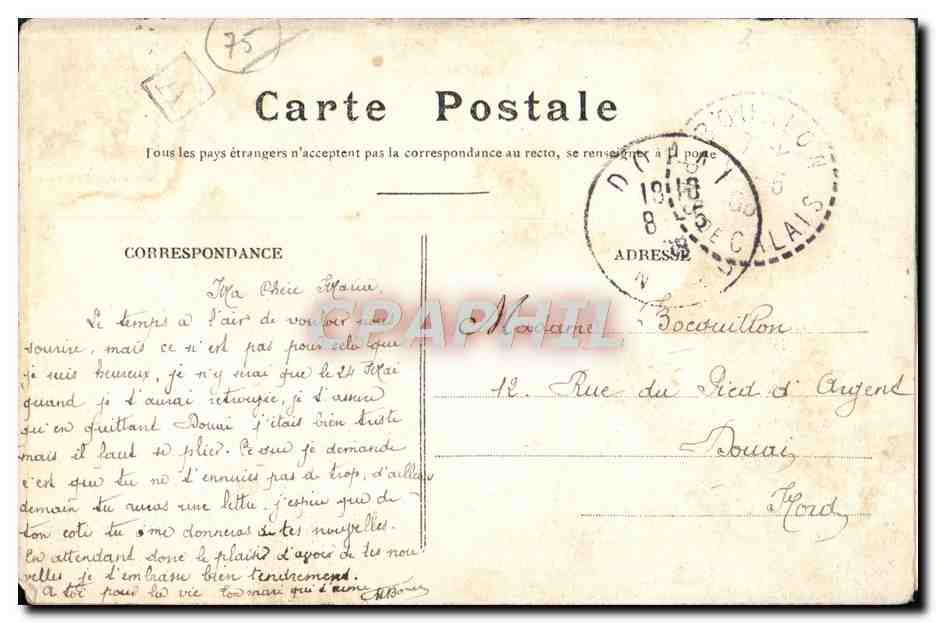 75
A
Carte Postale
Tous les pays étrangers n'acceptent pas la correspondance au recto, se renseigner à la poste
DOUAI
18
8 5
NORD
CALAIS
CORRESPONDANCE
ADRESSE
Ma Chère Marie,
Le temps a l'air de vouloir nous
sourire, mais ce n'est pas pour cela que
je suis heureux, je n'y serai que le 24 Mai
quand je t'aurai retrouvée, je t'assure
qu'en quittant Douai j'étais bien triste
mais il faut se plier. Ce que je demande
c'est que tu ne t'ennuies pas à trop, d'ailleurs
demain tu auras une lettre, j'espère que de
ton coté tu me donneras de tes nouvelles.
En attendant donc le plaisir d'avoir de tes nou
velles, je t'embrasse bien tendrement.
A toi pour la vie ton mari qui t'aime
Madame Bocquillon
12. Rue du Pied d'Argent
Douai
Nord
CPAPHIL